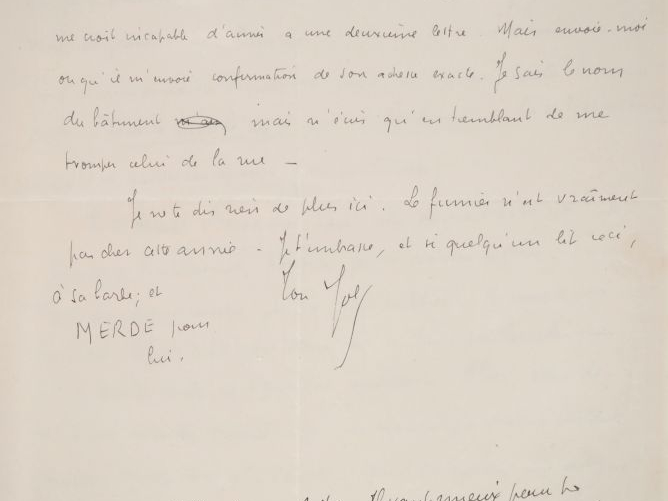 me croit incapable d'arriver a une deuxième lettre. Mais envoie-moi
ou qu'il m'envoie confirmation de son adresse exacte. Je sais le nom
du bâtiment mais n'écris qu'en tremblant de me
tromper celui de la rue —
Je ne te dis rien de plus ici. Le fumier n'est vraiment
pas cher cette année - Je t'embrasse, et si quelqu'un lit ceci,
à sa barbe; et
Ton
MERDE pour
lui.